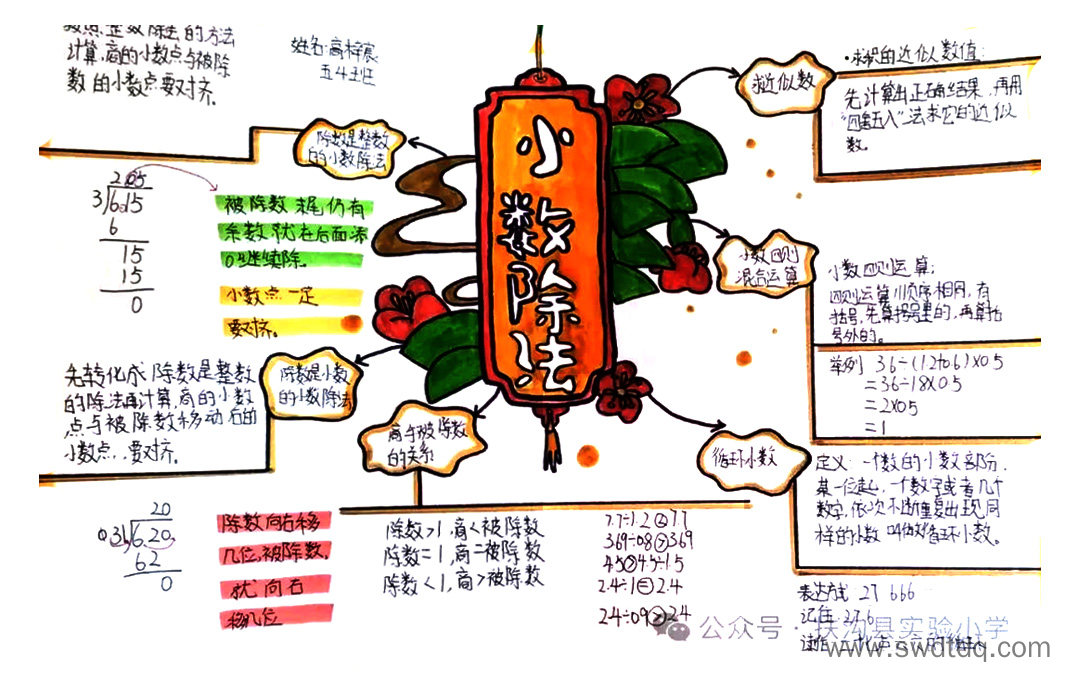 整数除法的方法
计算,商的小数点与被除
数的小数点要对齐。
姓名:高梓宸
五4班
除数是整数
的小数除法
2.05
3 6.15
6
15
15
0
被除数末尾仍有
余数就在后面添
0继续除.
小数点一定
要对齐。
先转化成除数是整数
的除法再计算,商的小数
点与被除数移动后的
小数点,要对齐。
除数是小数
的小数除法
20
0.31 6.20
62
0
除数向右移
几位,被除数
就向右
移几位
小数除法
商与被除数
的关系
除数>1,商<被除数
除数=1,商=被除数
除数<1,商>被除数
7.7÷1.2<7.7
369÷08>369
45>45÷15
2.4÷1=2.4
24÷09>24
求近似数
·求积的近似数值:
先计算出正确结果,再用
"四舍五入"法求它的近似
数。
小数四则
混合运算
小数四则运算:
四则运算顺序相同,有
括号,先算括号里的,再算括
号外的。
举例 36÷(12+06)×05
=36÷18×05
=2×05
=1
循环小数
定义 一个数的小数部分,
某一位起,一个数字或者几个
数字,依次不断重复出现,同
样的小数叫做循环小数。
表达方式 27 666
记作 27 6
读作
公众号·扶沟县实验小学
www.swdtdq.com